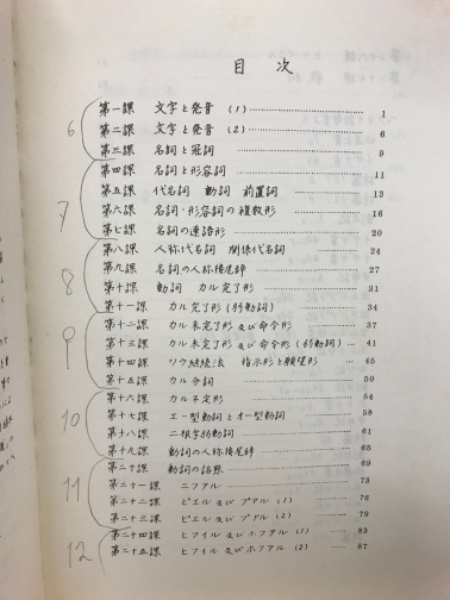 目次
第一課 文字と発音 (1) 1
第二課 文字と発音 (2) 6
第三課 名詞と冠詞 9
第四課 名詞と形容詞 11
第五課 代名詞 動詞 前置詞 13
第六課 名詞·形容詞の複数形 16
第七課 名詞の連語形 20
第八課 人称代名詞 関係代名詞 24
第九課 名詞の人称接尾辞 27
第十課 動詞 カル完了形 31
第十一課 カル完了形 (弱動詞) 34
第十二課 カル未完了形及び命令形 37
第十三課 カル未完了形及び命令形 (弱動詞) 41
第十四課 ワウ継続法 指示形と願望形 45
第十五課 カル分詞 50
第十六課 カル不定形 54
第十七課 エー型動詞とオー型動詞 58
第十八課 二根字弱動詞 65
第十九課 動詞の人称接尾辞 68
第二十課 動詞の語態 69
第二十一課 ニフアル 73
第二十二課 ピエル及びプアル (1) 76
第二十三課 ピエル及びプアル (2) 79
第二十四課 ヒフイル及びホフアル (1) 83
第二十五課 ヒフイル及びホフアル (2) 87
6
7
8
9
10
11
12